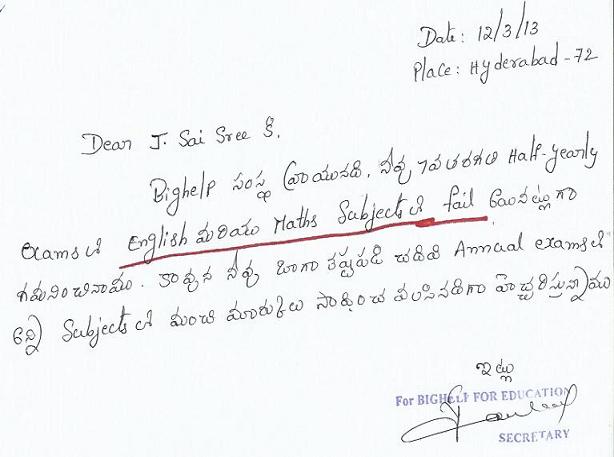 Date: 12/3/13
Place: Hyderabad-72
Dear J. Sai Sree కి,
Bighelp సంస్థ వ్రాయునది, నీవు 7వ తరగతి Half-yearly
exams లో English మరియు Maths Subjects లో fail అయినట్లుగా
గమనించినాము. కావున నీవు బాగా కష్టపడి చదివి Annual exams లో
అన్ని Subjects లో మంచి మార్కులు సాధించ వలసినదిగా హెచ్చరిస్తున్నాము
ఇట్లు
For BIGHELP FOR EDUCATION
SECRETARY